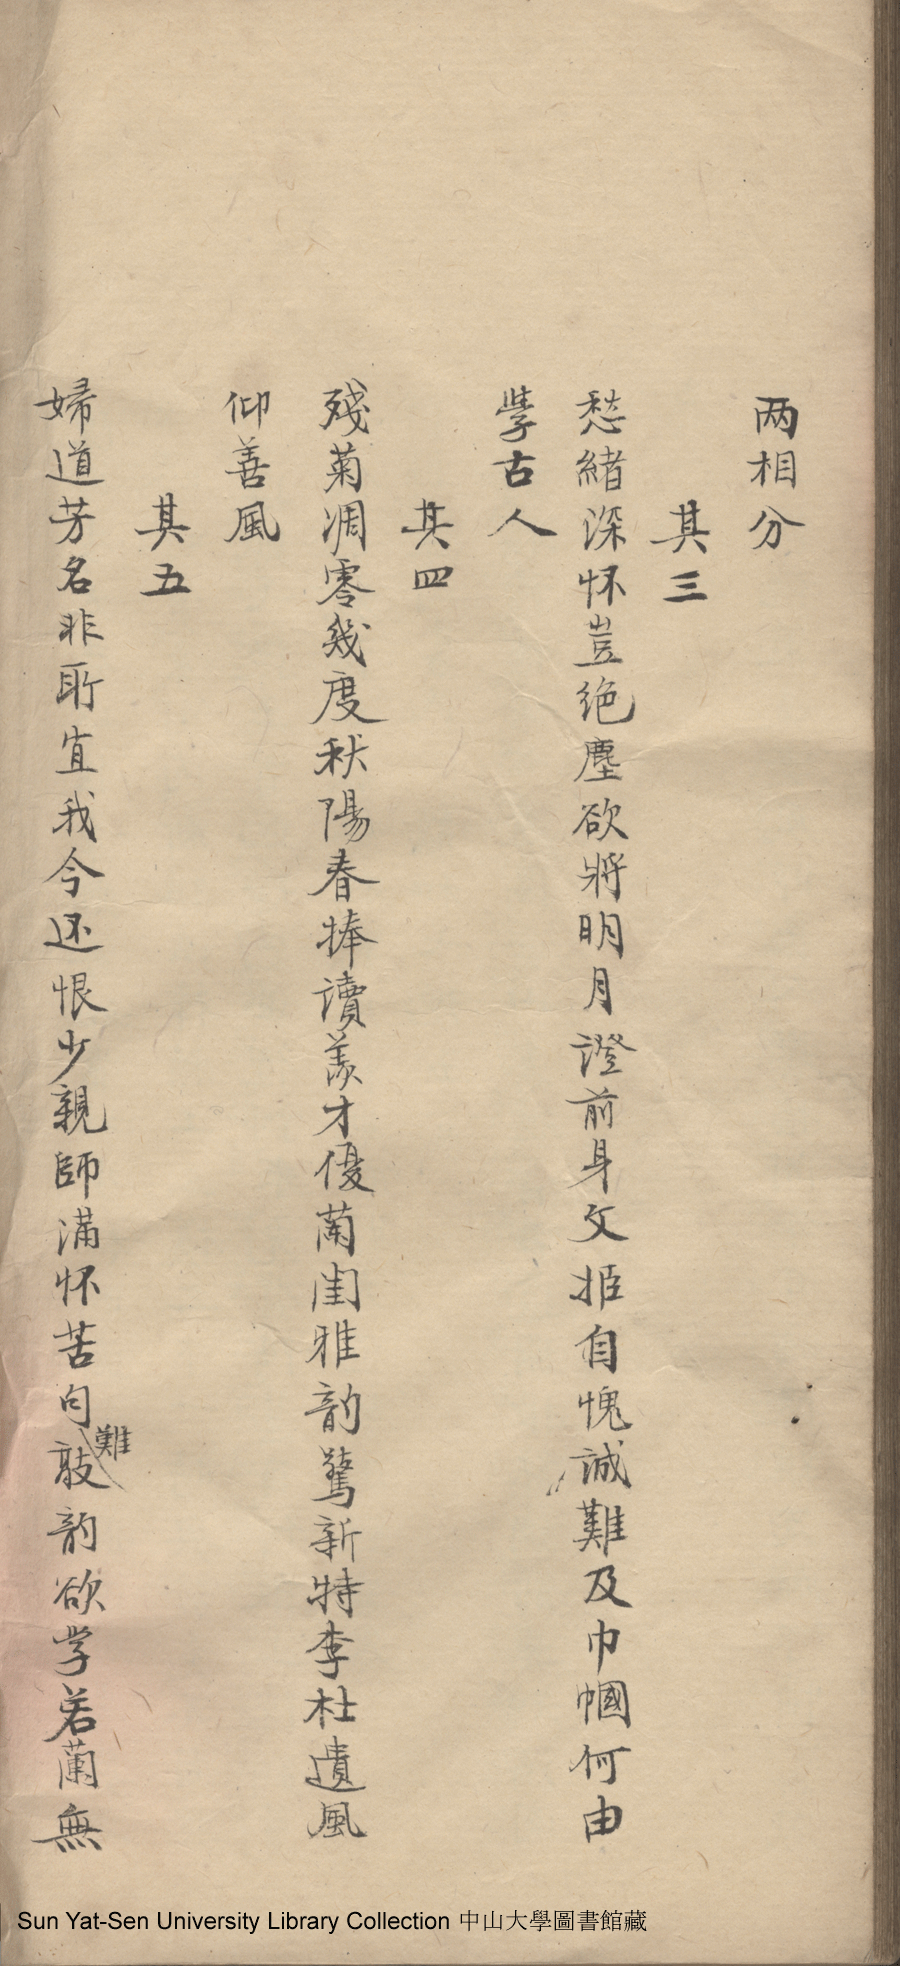 两相分
其三
愁緒深怀豈绝塵欲將明月證前身文姬自愧誠難及巾幗何由
學古人
其四
殘菊凋零幾度秋陽春捧讀羨才優蘭闺雅韵驚新特李杜遺風
仰善風
其五
婦道芳名非所宜我今还恨少親師满怀苦句敲難韵欲学若蘭無
Sun Yat-Sen University Library Collection 中山大學圖書館藏